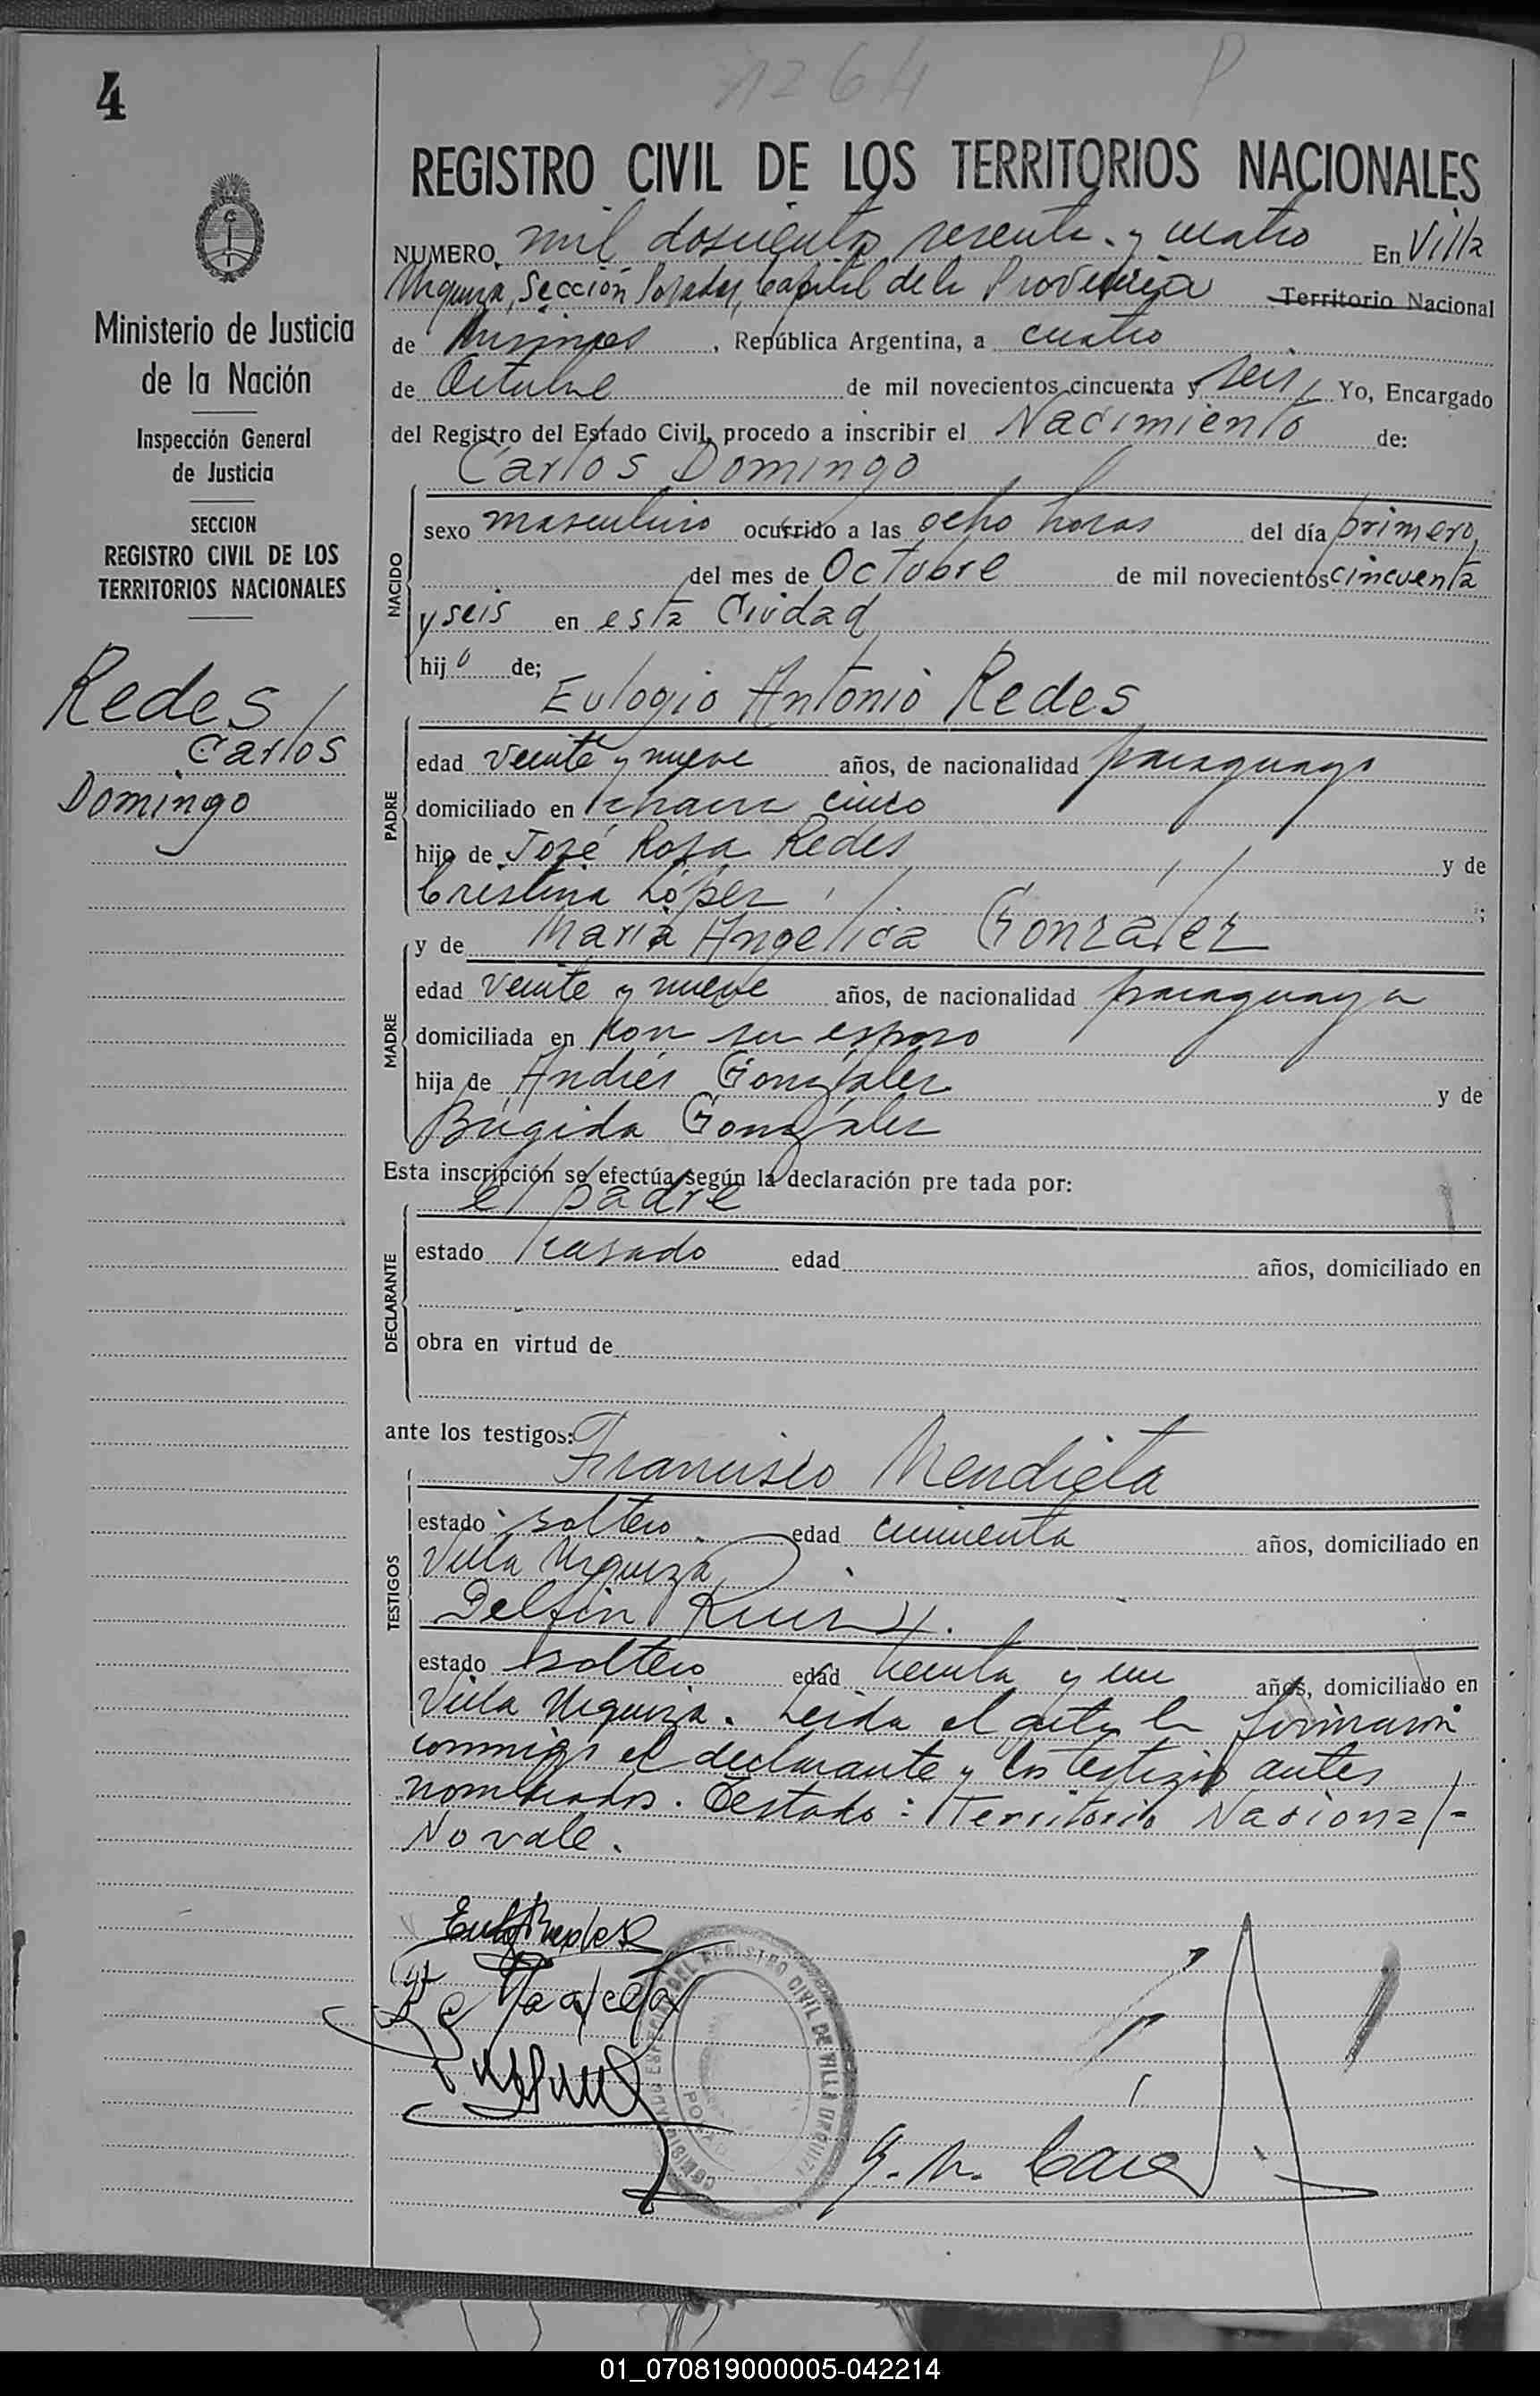 1264 P
4
REGISTRO CIVIL DE LOS TERRITORIOS NACIONALES
Ministerio de Justicia
de la Nación
Inspección General
de Justicia
SECCION
REGISTRO CIVIL DE LOS
TERRITORIOS NACIONALES
Redes
Carlos
Domingo
NUMERO mil doscientos sesenta y cuatro En Villa
Urquiza, Sección Posadas, Capital de la Provincia Territorio Nacional
de Misiones, República Argentina, a cuatro
de Octubre de mil novecientos cincuenta y seis, Yo, Encargado
del Registro del Estado Civil, procedo a inscribir el Nacimiento de:
Carlos Domingo
NACIDO
sexo masculino ocurrido a las ocho horas del día primero,
del mes de Octubre de mil novecientos cincuenta
y seis en esta Ciudad
hijo de;
Eulogio Antonio Redes
PADRE
edad veinte y nueve años, de nacionalidad paraguayo
domiciliado en chacra cinco
hijo de José Rosa Redes y de
Cristina López ;
MADRE
y de María Angélica González
edad veinte y nueve años, de nacionalidad paraguaya
domiciliada en con su esposo
hija de Andrés González y de
Brígida González
Esta inscripción se efectúa según la declaración pre tada por:
el padre
DECLARANTE
estado casado edad años, domiciliado en
obra en virtud de
ante los testigos:
Francisco Mendieta
TESTIGOS
estado soltero edad cincuenta años, domiciliado en
Villa Urquiza
Delfin
estado soltero edad treinta y un años, domiciliado en
Villa Urquiza. Leida el acta la firmaron
conmigo el declarante y los testigos antes
nombrados. Testado: Territorio Nacional-
No vale.
DEL REGISTRO CIVIL DE VILLA URQUIZA
01_070819000005-042214